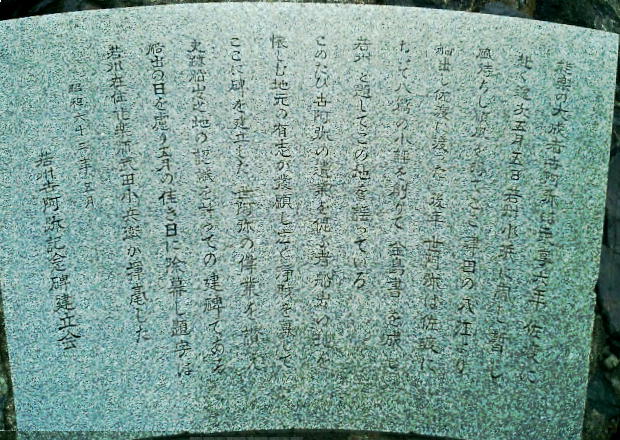 能楽の大成者世阿弥は永享六年 佐渡に
赴く途次五月五日 若州小浜に着き 暫し
風待ちし順風を得てここ津田の入江より
船出し佐渡に渡った 後年 世阿弥は佐渡に
おいて八篇の小謡を創りて 金島書を成し
若州と題してこの地を謡っている
このたび世阿弥の遺業を偲ぶ者船出の地を
懐しむ地元の有志が発願し広く浄財を募って
ここに碑を建立した 世阿弥の偉業を讃え
史蹟船出之地の認識を計っての建碑である
船出の日を慮り五月の佳き日に除幕し題字は
若州在住能楽師武田小兵衛が揮毫した
昭和六十三年五月
若州世阿弥記念碑建立会